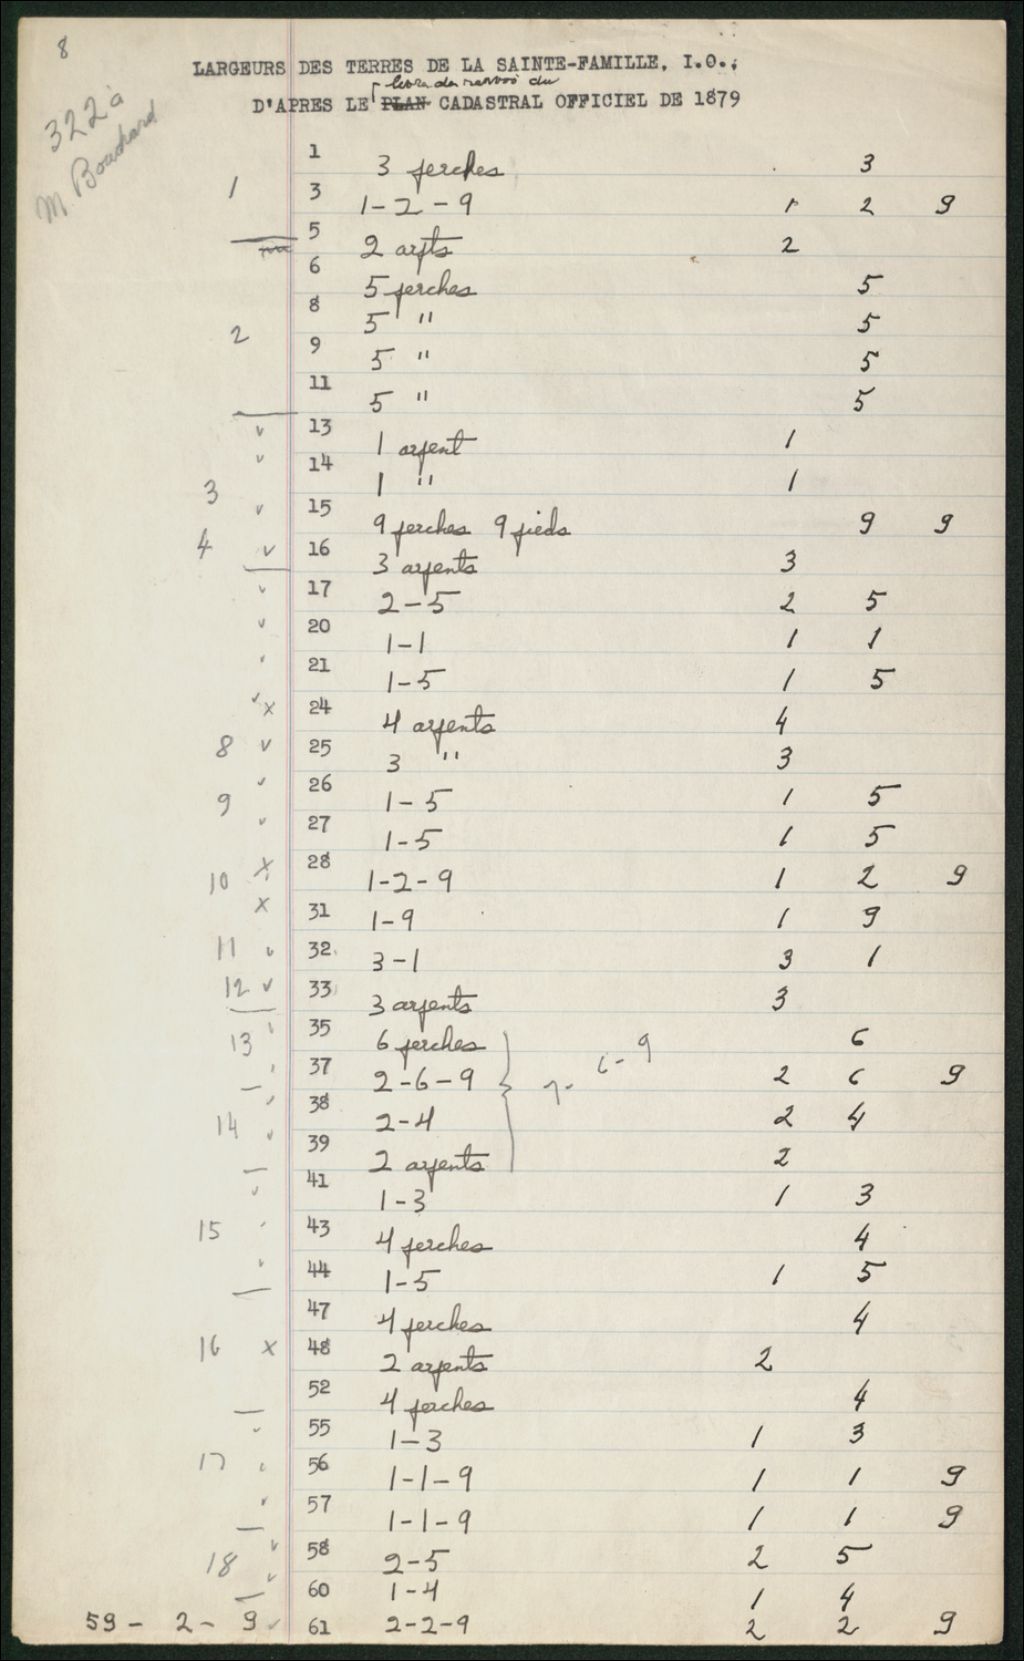 8
LARGEURS DES TERRES DE LA SAINTE-FAMILLE, I.O.,
livre de renvoi du
D'APRES LE PLAN CADASTRAL OFFICIEL DE 1879
322 à
M. Bouchard
1 3 perches 3
1 3 1-2-9 1 2 9
5 2 arpts 2
6 5 perches 5
8 5 " 5
2 9 5 " 5
11 5 " 5
v 13 1 arpent 1
v 14 1 " 1
3 v 15 9 perches 9 pieds 9 9
4 v 16 3 arpents 3
v 17 2-5 2 5
v 20 1-1 1 1
21 1-5 1 5
v x 24 4 arpents 4
8 v 25 3 " 3
v 26 1-5 1 5
9 v 27 1-5 1 5
10 x 28 1-2-9 1 2 9
x 31 1-9 1 9
11 v 32 3-1 3 1
12 v 33 3 arpents 3
13 35 6 perches 6
37 2-6-9 7-6-9 2 6 9
38 2-4 2 4
14 v 39 2 arpents 2
v 41 1-3 1 3
15 43 4 perches 4
44 1-5 1 5
47 4 perches 4
16 x 48 2 arpents 2
52 4 perches 4
55 1-3 1 3
17 56 1-1-9 1 1 9
v 57 1-1-9 1 1 9
18 v 58 2-5 2 5
v 60 1-4 1 4
59 - 2 - 9 v 61 2-2-9 2 2 9